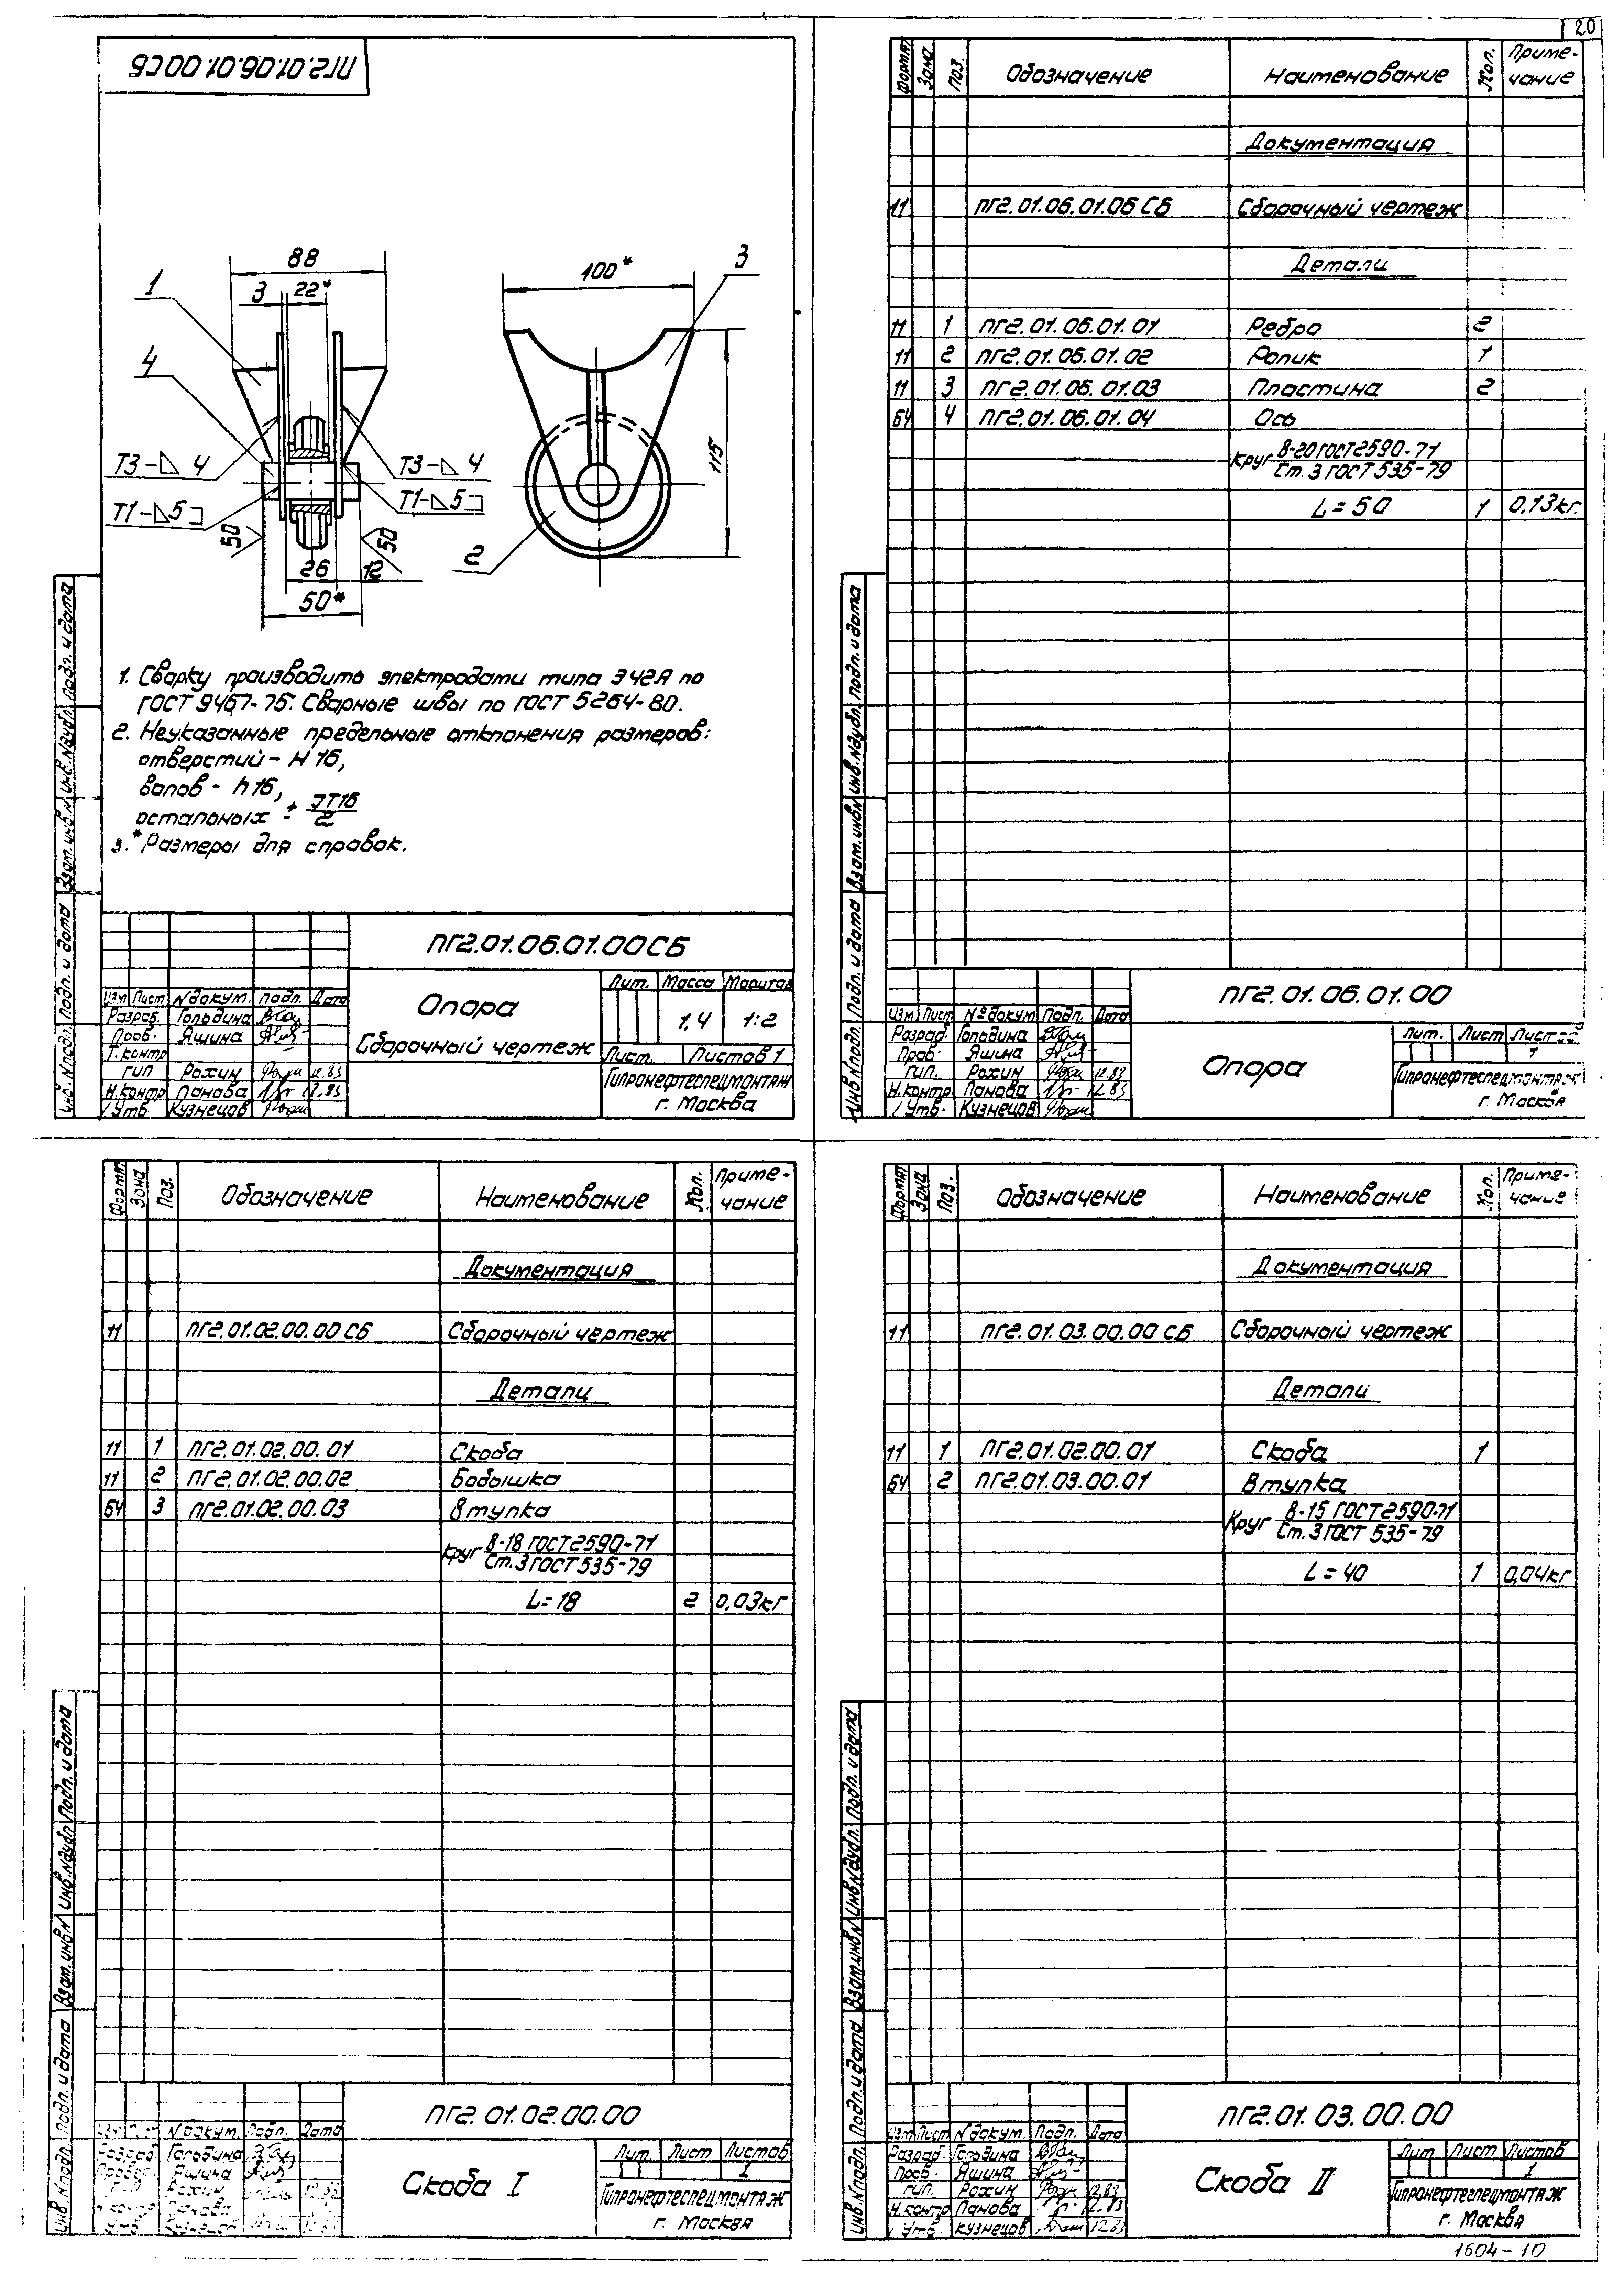 20
ПГ2.01.06.01.00СБ
88
3
22*
1
4
Т3-◺ 4
Т1-◺5⊐
50
Т3-◺ 4
Т1-◺5⊐
50
26
12
50*
100*
3
115
2
1. Сварку производить электродами типа Э42А по
ГОСТ 9467-75. Сварные швы по ГОСТ 5264-80.
2. Неуказанные предельные отклонения размеров:
отверстий - Н16,
валов - h16,
остальных ± JT16/2
3.*Размеры для справок.
Инв.№подл. Подп. и дата Взам.инв№ Инв.№дубл. Подп. и дата
ПГ2.01.06.01.00СБ
Опора
Сборочный чертеж
Лит. Масса Масштаб
1,4 1:2
Лист. Листов 1
Гипронефтеспецмонтаж
г. Москва
Изм Лист №докум. Подп. Дата
Разраб. Гольдина
Пров. Яшина
Т.контр
ГИП Рохин 12.83
Н.контр Панова 12.83
Утв. Кузнецов
Формат Зона Поз. Обозначение Наименование Кол. Приме-
чание
Документация
11 ПГ2.01.06.01.06 СБ Сборочный чертеж
Детали
11 1 ПГ2.01.06.01.01 Ребро 2
11 2 ПГ2.01.06.01.02 Ролик 1
11 3 ПГ2.01.06.01.03 Пластина 2
БЧ 4 ПГ2.01.06.01.04 Ось
Круг В-20 ГОСТ 2590-71
Ст.3 ГОСТ 535-79
L=50 1 0,13кг.
Инв№подл. Подп. и дата Взам.инв№ Инв.№дубл. Подп. и дата
ПГ2.01.06.01.00
Изм Лист №докум Подп. Дата
Разраб. Гольдина
Пров. Яшина
ГИП. Рохин 12.83
Н.контр. Панова 12.83
Утв. Кузнецов
Опора
Лит. Лист Листов
1
Гипронефтеспецмонтаж
г. Москва
Формат Зона Поз. Обозначение Наименование Кол. Приме-
чание
Документация
11 ПГ2.01.02.00.00 СБ Сборочный чертеж
Детали
11 1 ПГ2.01.02.00.01 Скоба
11 2 ПГ2.01.02.00.02 Бобышка
БЧ 3 ПГ2.01.02.00.03 Втулка
Круг В-18 ГОСТ 2590-71
Ст.3 ГОСТ 535-79
L=18 2 0,03кг
Инв.№подл. Подп. и дата Взам.инв№ Инв.№дубл. Подп. и дата
ПГ2.01.02.00.00
Изм Лист №докум. Подп. Дата
Разраб Гольдина
Яшина
Рохин 12.83
Панова
Утв. Кузнецов
Скоба I
Лит. Лист Листов
1
Гипронефтеспецмонтаж
г. Москва
Формат Зона Поз. Обозначение Наименование Кол. Приме-
чание
Документация
11 ПГ2.01.03.00.00 СБ Сборочный чертеж
Детали
11 1 ПГ2.01.02.00.01 Скоба 1
БЧ 2 ПГ2.01.03.00.01 Втулка
Круг В-15 ГОСТ 2590-71
Ст.3 ГОСТ 535-79
L=40 1 0,04кг
Инв.№подл. Подп. и дата Взам.инв№ Инв.№дубл. Подп. и дата
ПГ2.01.03.00.00
Изм Лист №докум. Подп. Дата
Разраб Гольдина
Пров. Яшина
ГИП. Рохин 12.83
Н.контр Панова 12.83
Утв. Кузнецов 12.83
Скоба II
Лит Лист Листов
1
Гипронефтеспецмонтаж
г. Москва
1604-10